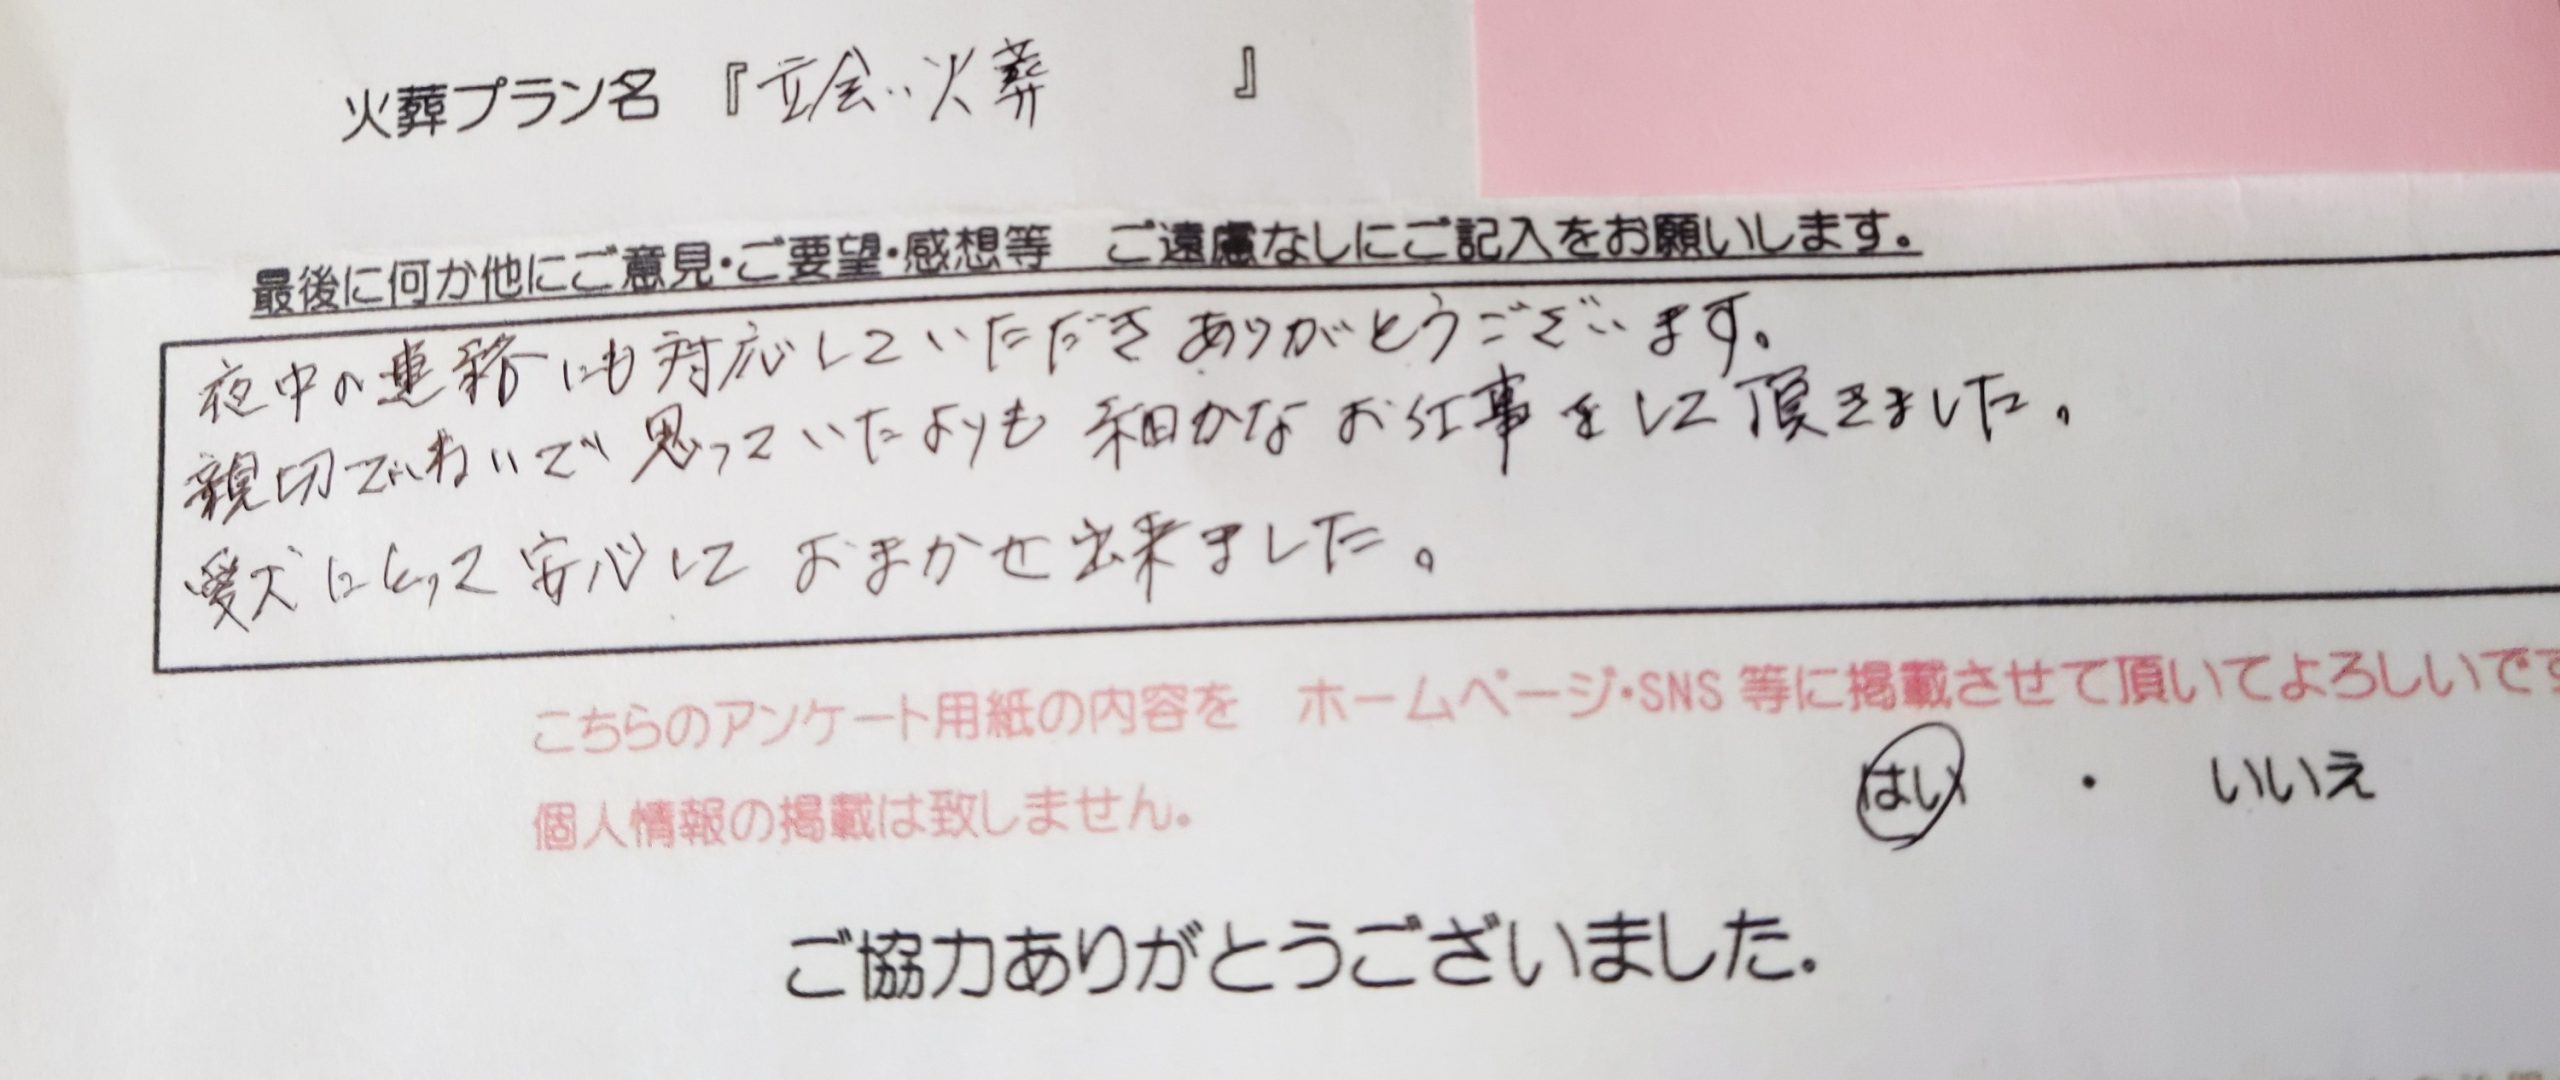 火葬プラン名 『立会い火葬 』
最後に何か他にご意見・ご要望・感想等 ご遠慮なしにご記入をお願いします。
夜中の連絡にも対応していただきありがとうございます。
親切ていねいで思っていたよりも細かなお仕事をして頂きました。
愛犬にとって安心しておまかせ出来ました。
こちらのアンケート用紙の内容を ホームページ・SNS 等に掲載させて頂いてよろしいです
はい ・ いいえ
個人情報の掲載は致しません。
ご協力ありがとうございました。